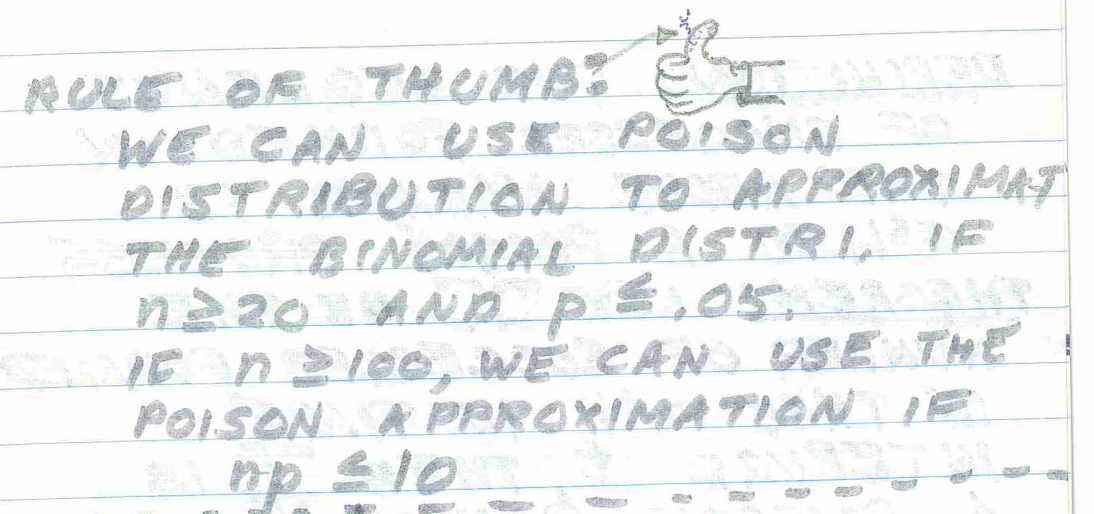 RULE OF THUMB:
WE CAN USE POISON
DISTRIBUTION TO APPROXIMAT
THE BINOMIAL DISTRI. IF
n ≥ 20 AND p ≤ .05.
IF n ≥ 100, WE CAN USE THE
POISON APPROXIMATION IF
np ≤ 10